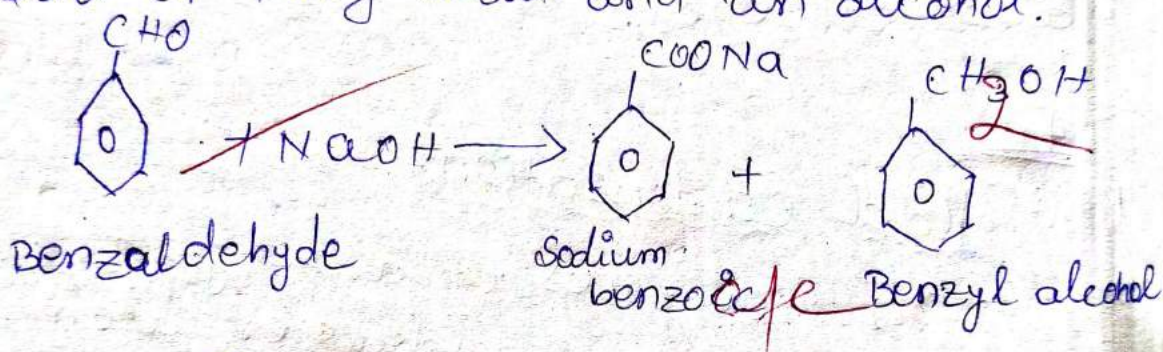 and an alcohol.
CHO COONa CH2OH
+ NaOH → +
Benzaldehyde Sodium
benzoate Benzyl alcohol